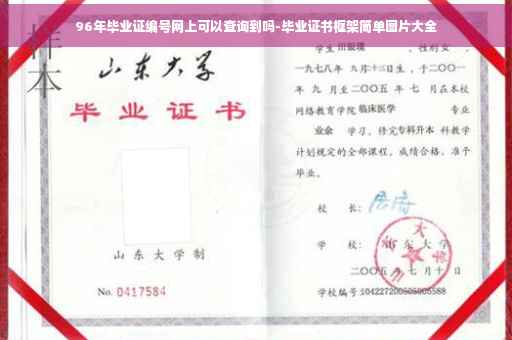 96年毕业证编号网上可以查询到吗-毕业证书框架简单图片大全
样本
山东大学
毕业证书
山东大学制
No. 0417584
学生
性别女,
一九七八年 九月十二日生,于二〇〇一
年 九 月至二〇〇五 年 七 月在本校
网络教育学院 临床医学 专业
业余 学习,修完专科升本 科教学
计划规定的全部课程,成绩合格,准予
毕业。
校 长:
学 校: 山东大学
二〇〇五 年 七 月 十 日
学校编号: